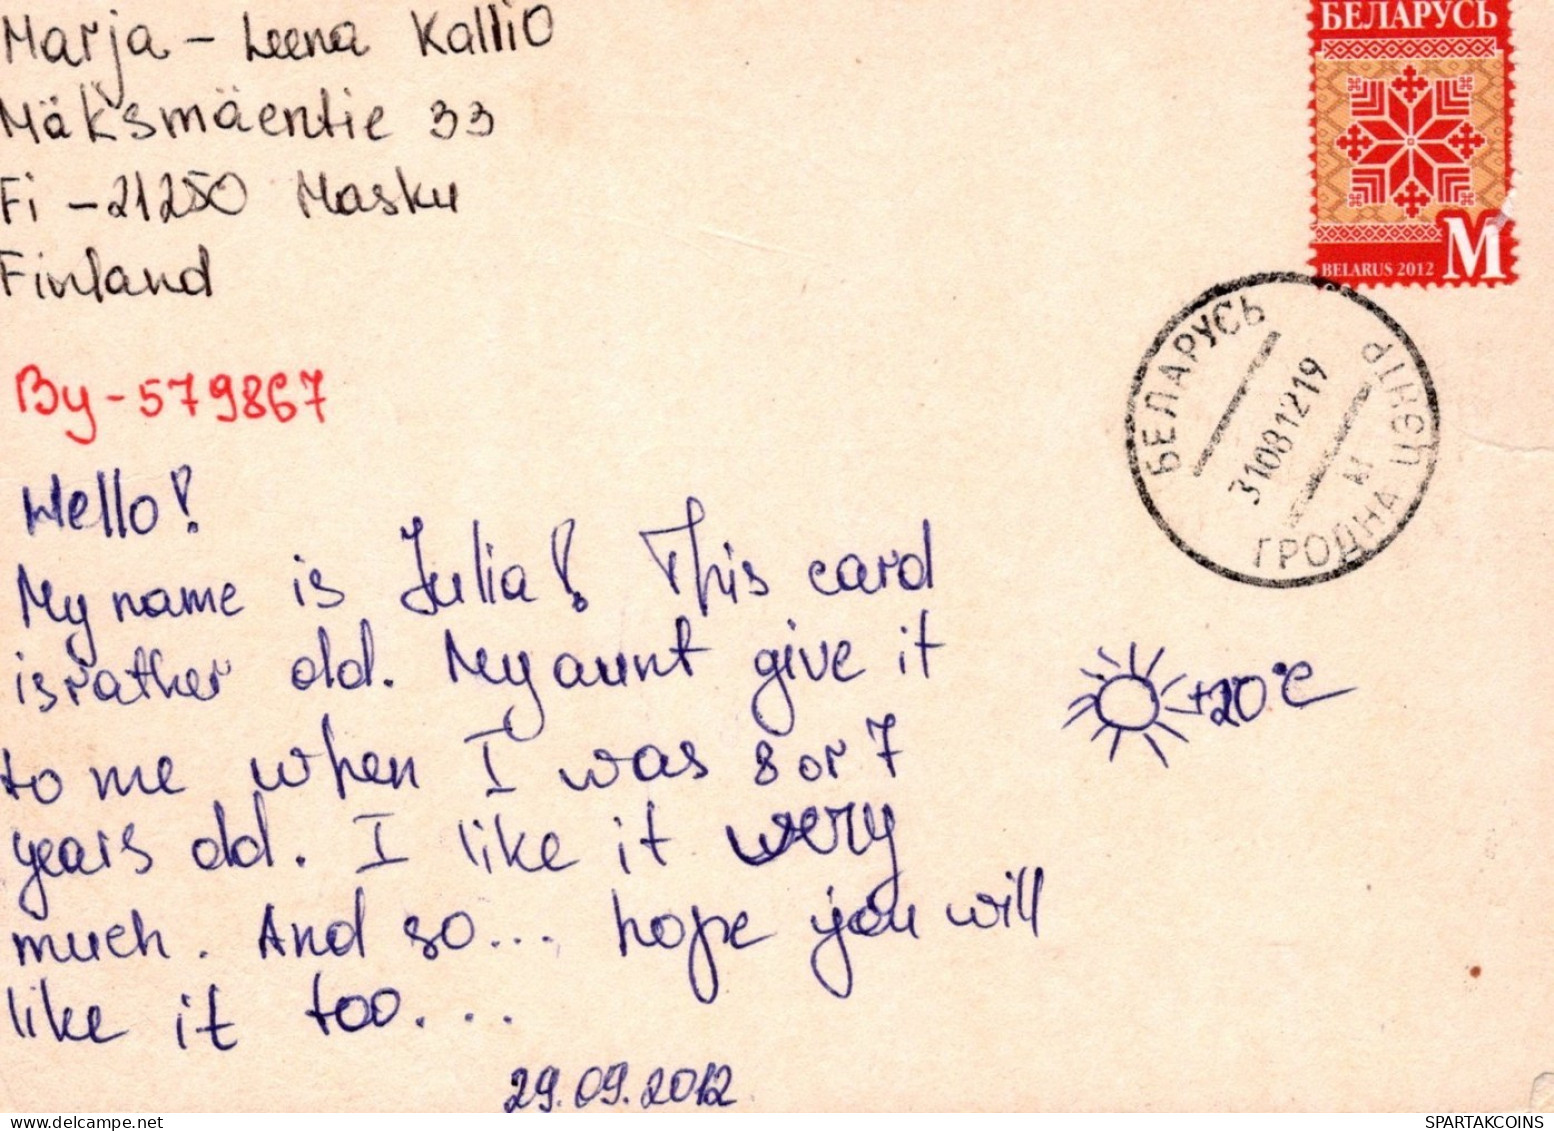 Marja - Leena Kallio
Mäksmäentie 33
Fi - 21250 Masku
Finland
БЕЛАРУСЬ
BELARUS 2012 M
БЕЛАРУСЬ
31081219
ГРОДНА ЦЕНТР
By - 579867
Hello!
My name is Julia! This card
is rather old. My aunt give it
to me when I was 8 or 7
years old. I like it wery
much. And so... hope you will
like it too...
+20°C
29.09.2012
SPARTAKCOINS